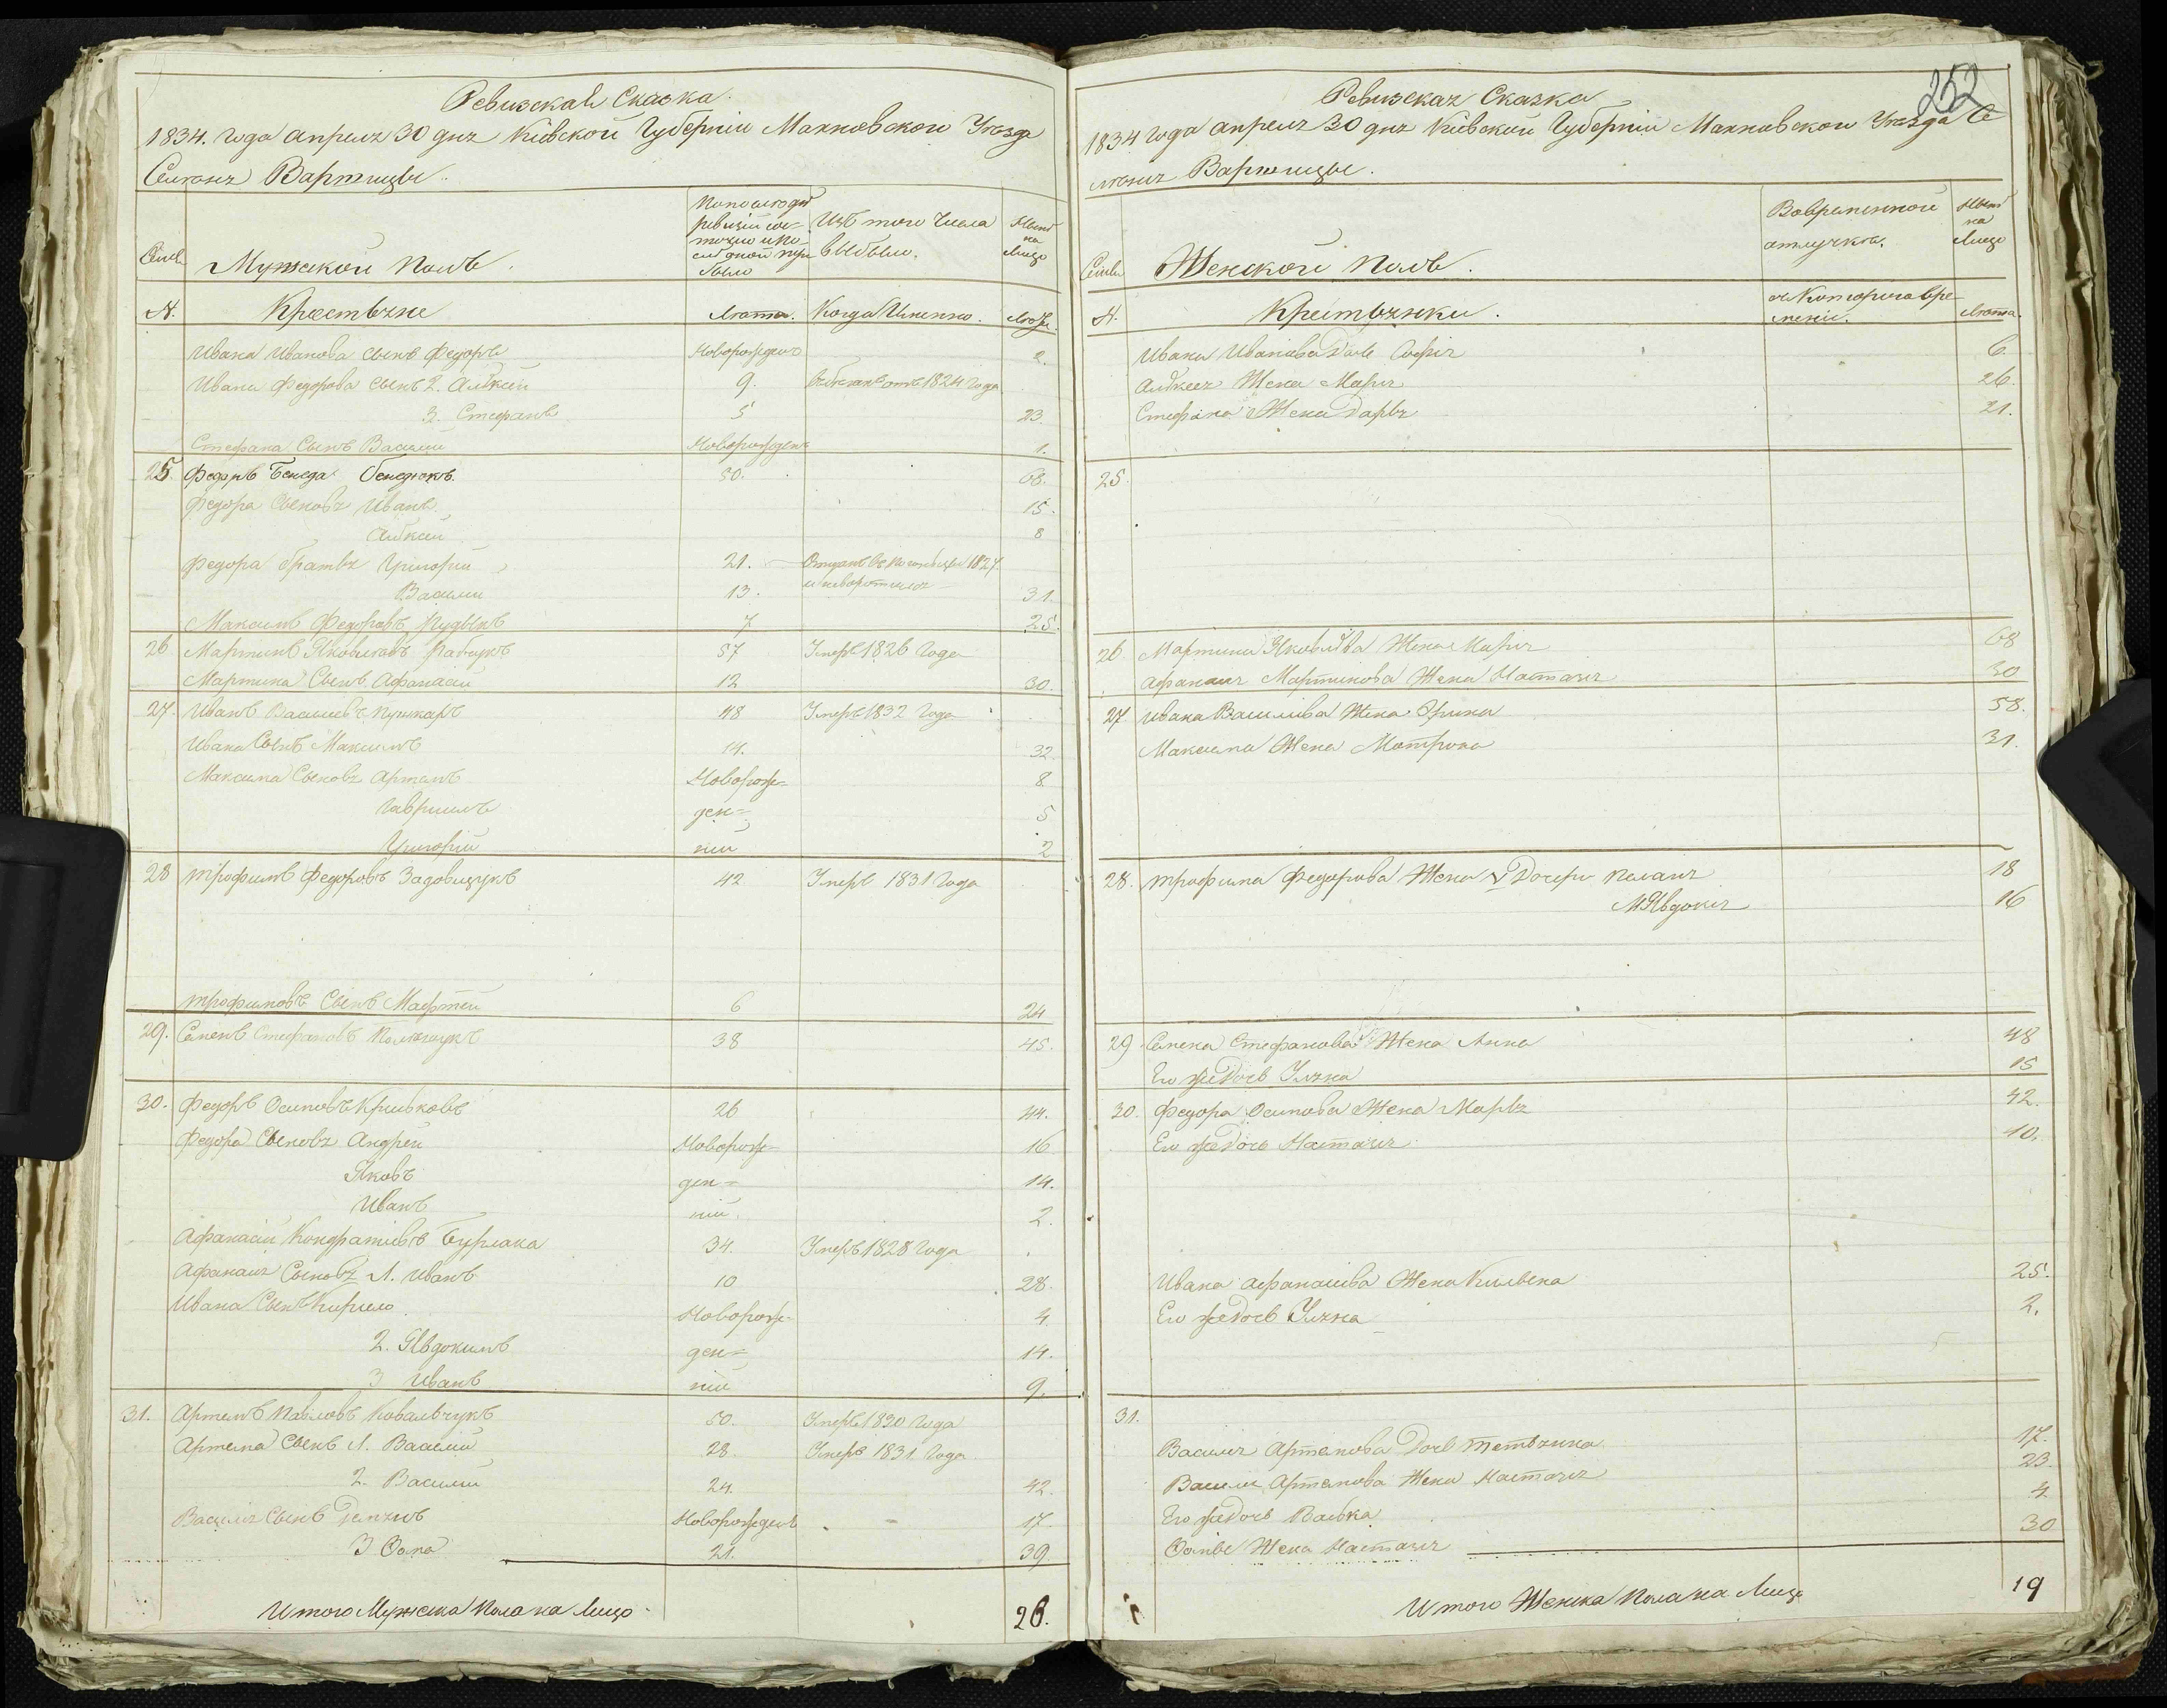 Ревизская Сказка.
1834. года апреля 30 дня Кіевской Губерніи Махновского Уезда
Селенія Вартицы.
Семьи
Мужской Полъ.
Изъ того числа
выбыло.
Ныне
на
лицо
N.
Крестьяне
Лета.
Когда Именно.
Лета.
Ивана Иванова сынъ Федоръ
Новорожденъ
2.
Ивана Федорова сынъ 2. Алексей
9.
1824 года
3. Стефанъ
5
23.
Стефана Сынъ Василий
Новорожденъ
1.
25.
Федоръ Бенеда Бенедюкъ
50.
68.
Федора Сыновья Иванъ
15.
Алексей
8
Федора братья Григорий
21.
1827.
и неворотился
Василий
13.
31.
Максимъ Федоровъ
7
25.
26
Мартинъ Яковлевъ Рабчукъ
57
Умеръ 1826 Года
Мартина Сынъ Афанасий
12
30.
27.
Иванъ Васильевъ Пушкаръ
48
Умеръ 1832 Года
Ивана Сынъ Максимъ
14.
32.
Максима Сыновья Артемъ
Новорож=
8
Гавриилъ
ден=
5
Григорий
ний
2
28
Трофимъ Федоровъ Задовищукъ
42
Умеръ 1831 Года
Трофимовъ Сынъ Мафтей
6
24
29.
Семенъ Стефановъ Полищукъ
38
45.
30.
Федоръ Осиповъ Кривковъ
26
44.
Федора Сыновья Андрей
Новорож=
16
Яковъ
ден=
14.
Иванъ
ний
2.
Афанасий Кондратіевъ Бурлака
34.
Умеръ 1828 Года
Афанасия Сыновья 1. Иванъ
10
28.
Ивана Сынъ Кирило
Новорож=
4.
2. Явдокимъ
ден=
14.
3 Иванъ
ний
9.
31.
Артемъ Павловъ Ковальчукъ
50.
Умеръ 1830 Года
Артема Сынъ 1. Василий
28.
Умеръ 1831 Года
2. Василий
24.
42.
Василия Сынъ Демянъ
Новорожденъ
17.
3 Фома
21.
39.
Итого Мужеска Пола на Лицо
26.
252
Ревизская Сказка
1834 года апреля 30 дня Кіевской Губерніи Махновского Уезда Се
ленія Вартицы.
Семьи
Женской Полъ.
Вовременной
отлучке.
Ныне
на
Лицо
N.
Крестьянки.
съ Которого вре
мени.
Лета.
Ивана Иванова Дочь Софія
6.
Алексея Жена Марія
26.
Стефана Жена Дарья
21.
25.
26.
Мартина Яковлева Жена Марія
68
Афанасія Мартинова Жена Настасія
30
27
Ивана Василива Жена Ирина
58.
Максима Жена Мотрона
31.
28.
Трофима Федорова Жена Дочери Пелагія
18
Явдокія
16
29
Семена Стефанова Жена Анна
48
Его же Дочь Уляна
15
30.
Федора Осипова Жена Марья
42.
Его же Дочь Настасія
10.
Ивана Афанасиева Жена Кильвена
25.
Его же Дочь Уляна
2.
31.
Василия Артемова Дочь Тетьянна
17.
Василия Артемова Жена Настасія
23.
Его же Дочь
4.
Фомы Жена Настасія
30
Итого Женска Пола на Лицо
19